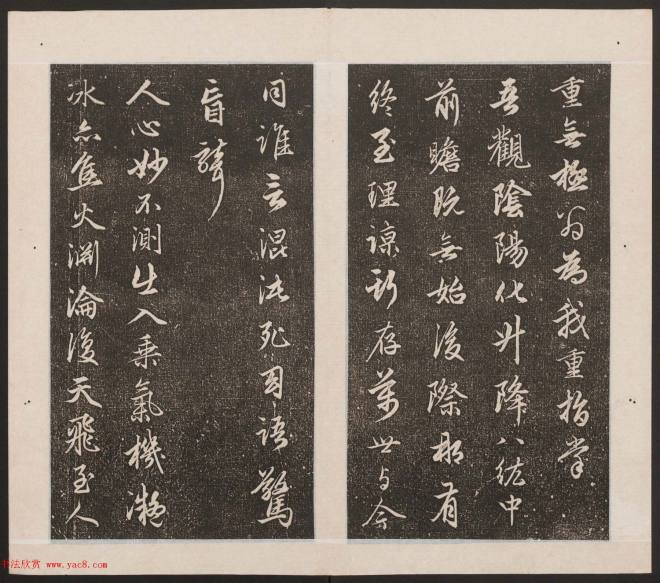 重無極翁為我重指掌
吾觀陰陽化升降八紘中
前瞻既無始後際那有
終至理諒斯存萬世与今
同誰云混沌死幻語驚
盲聾
人心妙不測出入乘氣機凝
冰亦焦火淵淪復天飛至人
书法欣赏 www.yac8.com